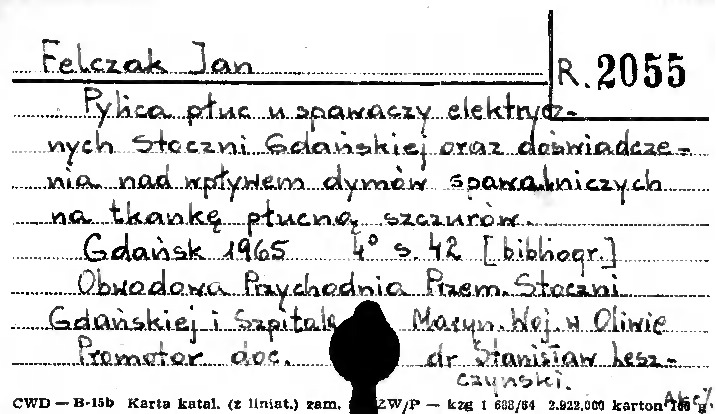 Felczak Jan
R. 2055
Pylica płuc u spawaczy elektrycz-
nych Stoczni Gdańskiej oraz doświadcze-
nia nad wpływem dymów spawalniczych
na tkankę płucną szczurów.
Gdańsk 1965 4° s. 42 [bibliogr.]
Obwodowa Przychodnia Przem. Stoczni
Gdańskiej i Szpitala Maryn. Woj. w Oliwie
Promotor doc. dr Stanisław Lesz-
czyński.
CWD — B-15b Karta katal. (z liniat.) zam. ZW/P — kzg 1 688/64 2.922.000 karton g.